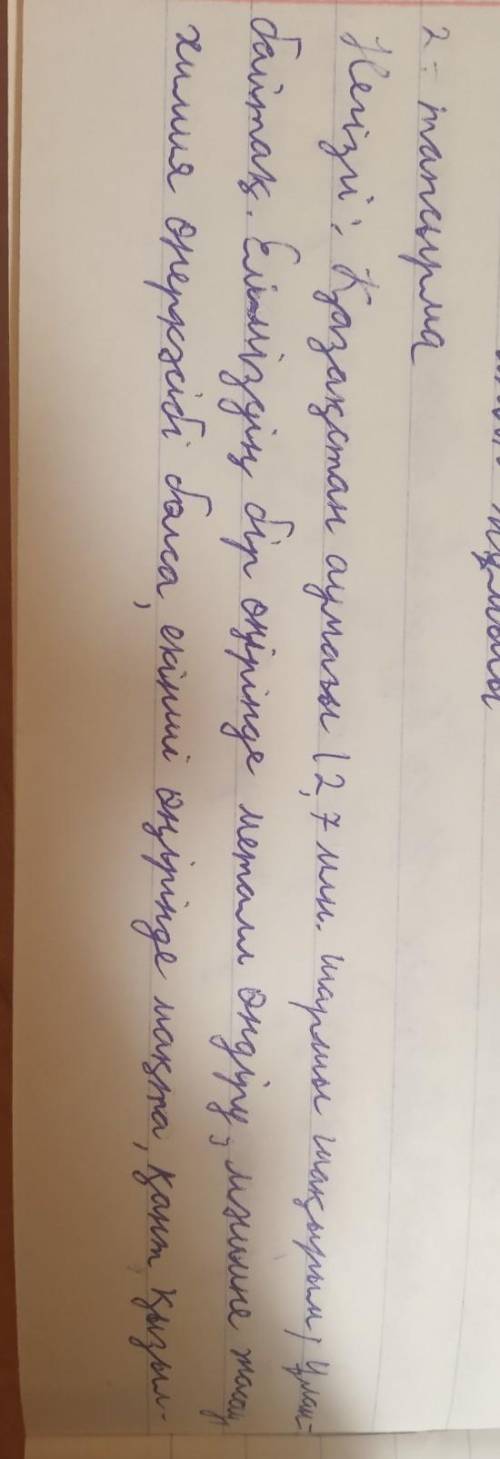 2 - тапсырма
Негізгі: Қазақстан аумағы (2,7 млн. шаршы шақырым) ұлан-
байтақ. Еліміздің бір өңірінде металл өндіру, жалау
химия өнеркәсібі болса, екінші өңірінде мақта, қант қызыл-